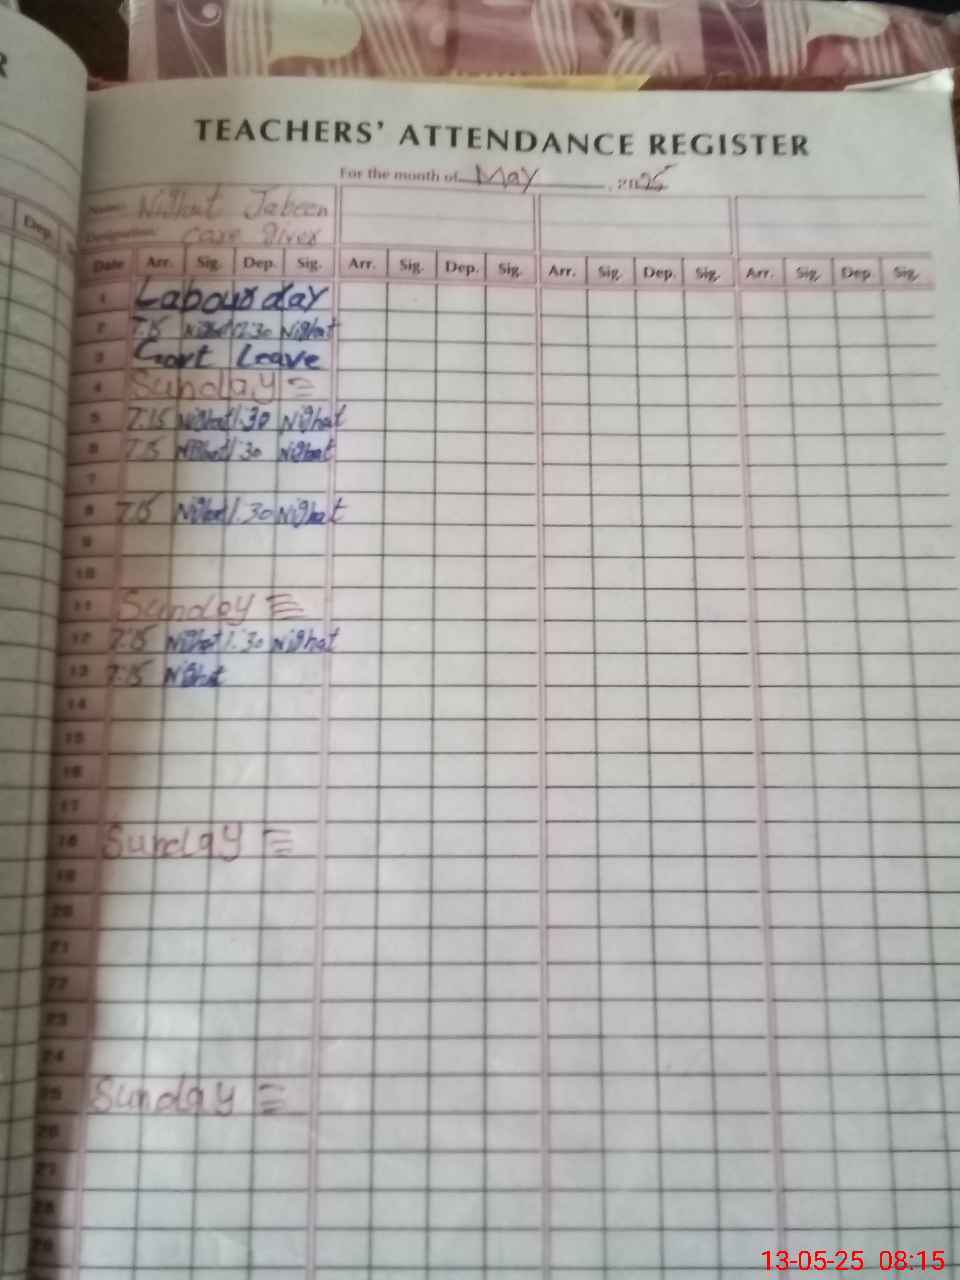 R
Dep.
TEACHERS' ATTENDANCE REGISTER
For the month of May, 2025
Name: Nighat Jabeen
Designation: Care Giver
Date Arr. Sig. Dep. Sig. Arr. Sig. Dep. Sig. Arr. Sig. Dep. Sig. Arr. Sig. Dep. Sig.
1 Labour day
2 7.15 Nighat 12:30 Nighat
3 Govt Leave
4 Sunday =
5 7:15 Nighat 1:30 Nighat
6 7:15 Nighat 1:30 Nighat
7
8 7:15 Nighat 1:30 Nighat
9
10
11 Sunday =
12 7:15 Nighat 1:30 Nighat
13 7:15 Nighat
14
15
16
17
18 Sunday =
19
20
21
22
23
24
25 Sunday =
26
27
28
29
13-05-25 08:15